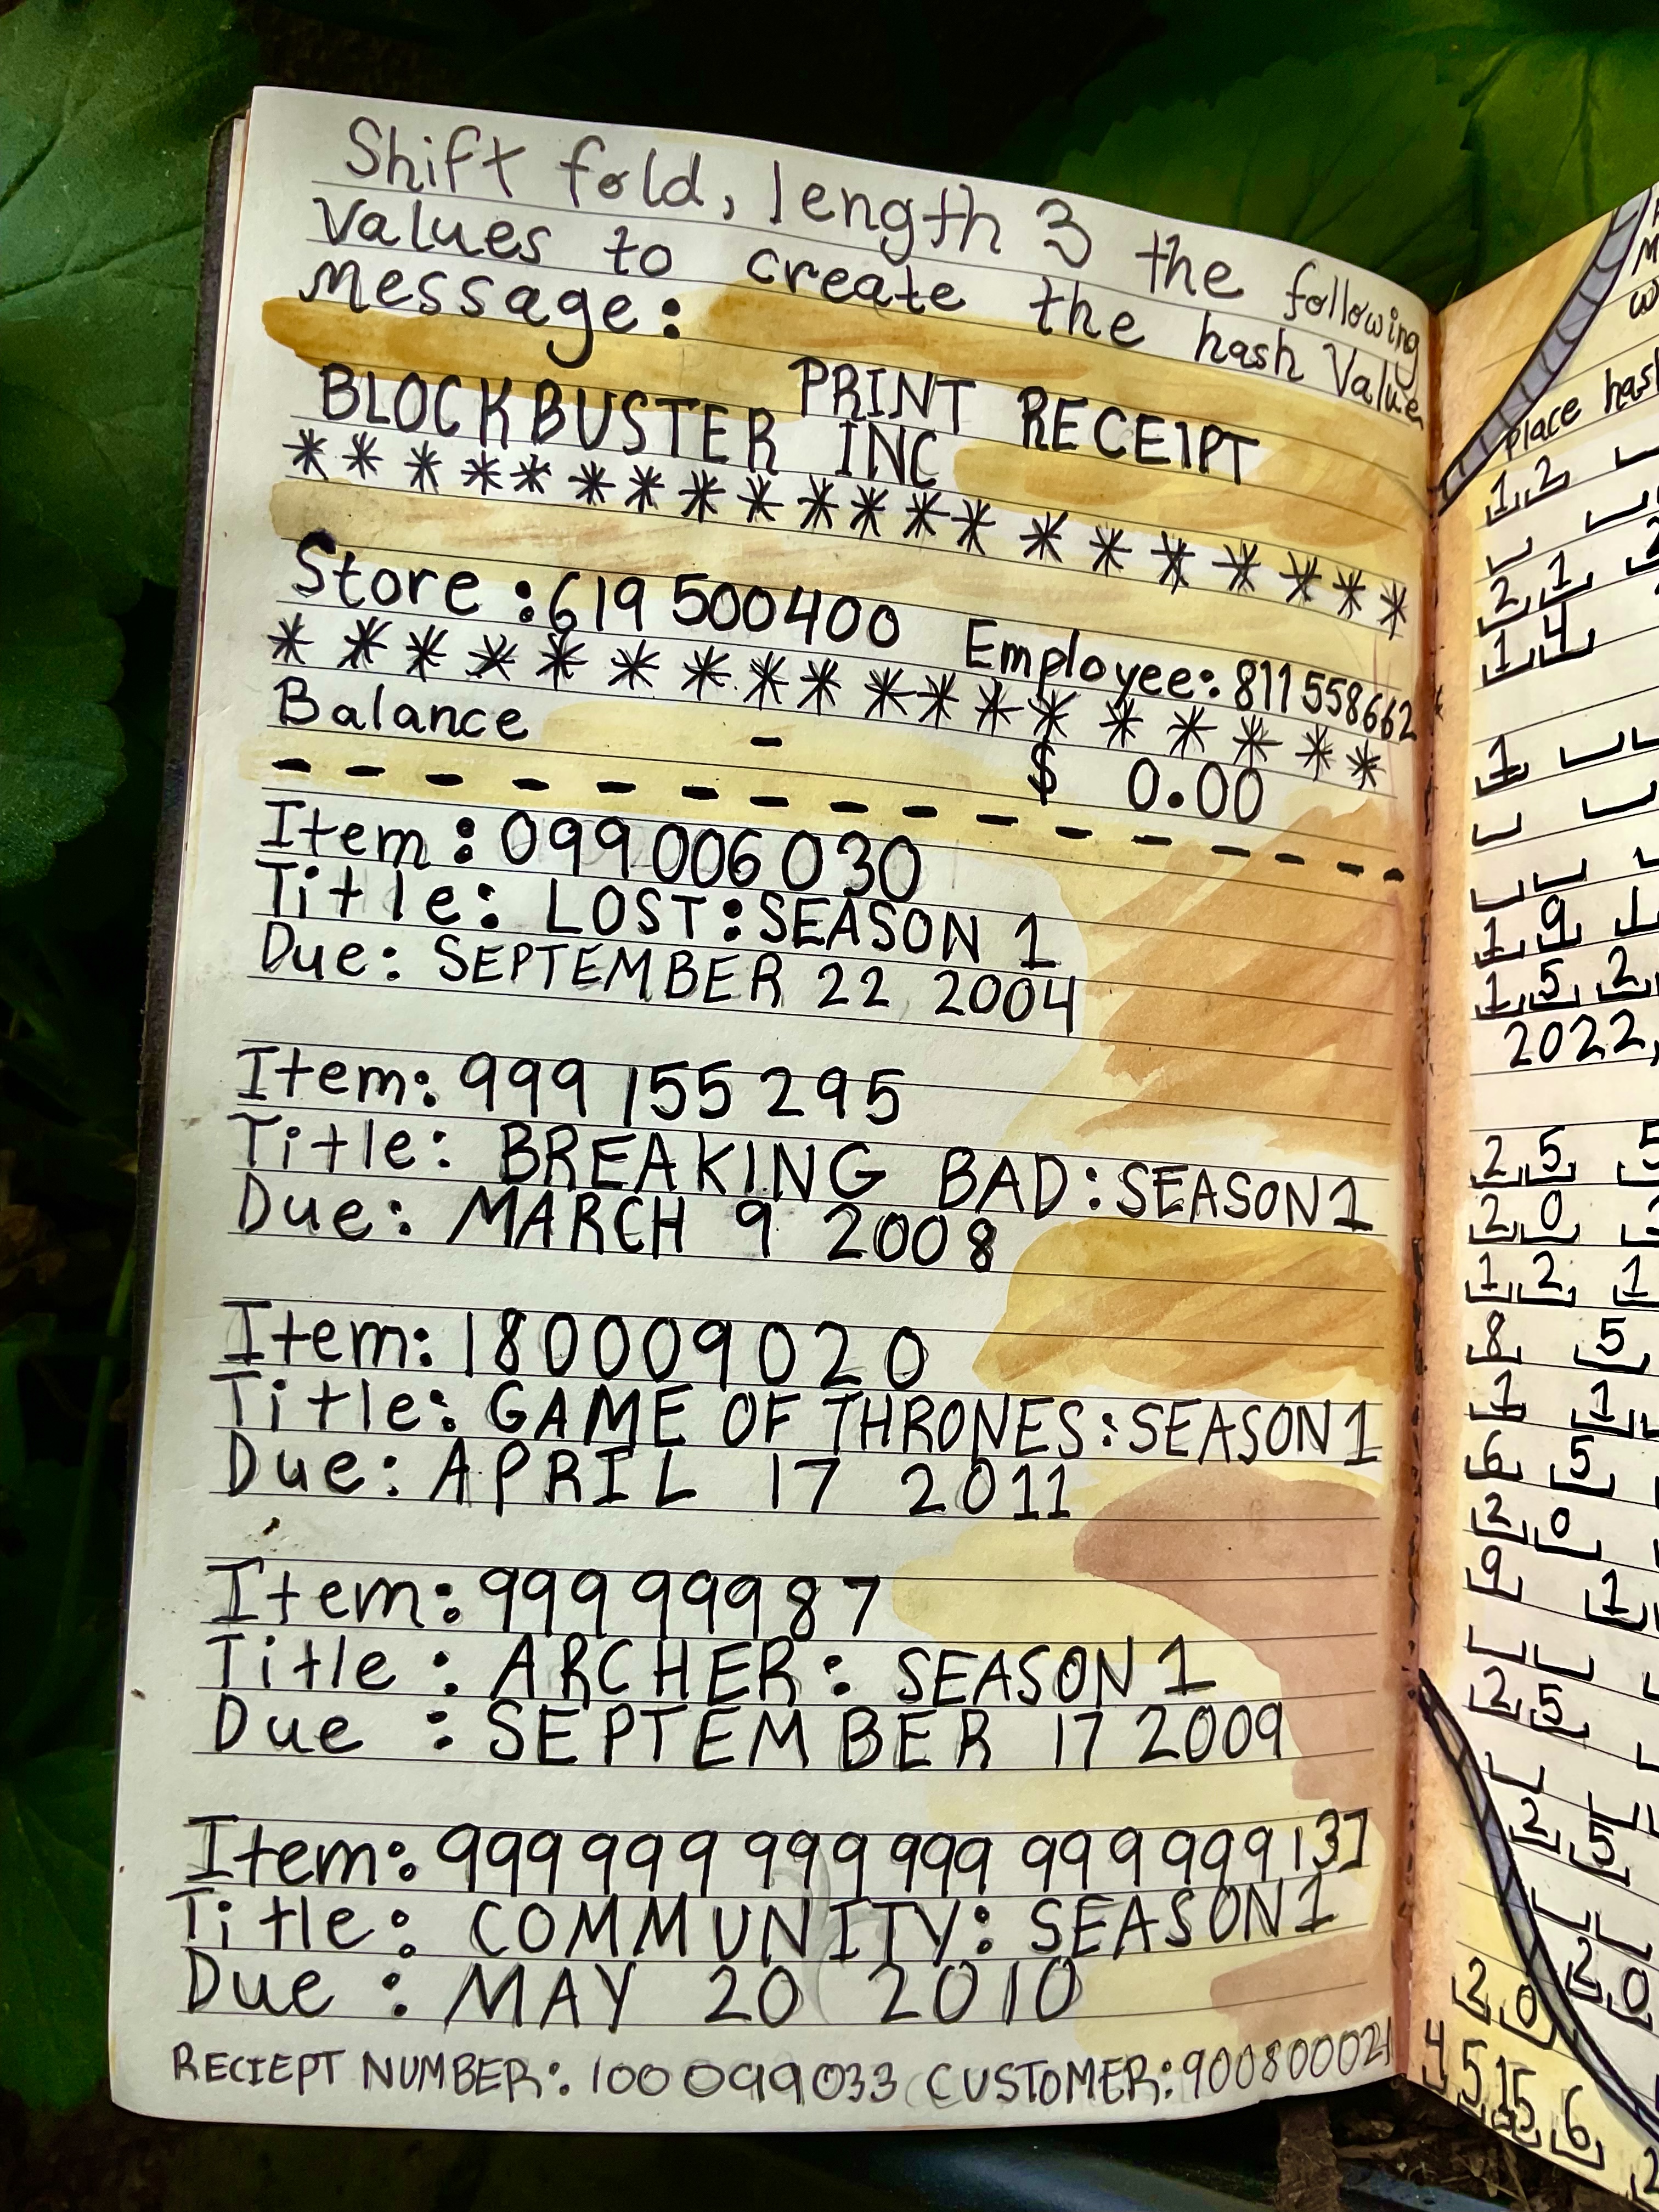 Shift fold, length 3 the following
Values to create the hash Value
message:
PRINT RECEIPT
BLOCKBUSTER INC
*********************
Store:619 500400 Employee:811558662
******************
Balance - $ 0.00
- - - - - - - - - - - - - - -
Item:099006030
Title: LOST:SEASON 1
Due: SEPTEMBER 22 2004
Item:999 155 295
Title: BREAKING BAD:SEASON1
Due: MARCH 9 2008
Item:180009020
Title: GAME OF THRONES:SEASON1
Due: APRIL 17 2011
Item:999 999 87
Title : ARCHER: SEASON1
Due : SEPTEMBER 17 2009
Item:999 999 999 999 999 999 137
Title: COMMUNITY: SEASON1
Due : MAY 20 2010
RECIEPT NUMBER: 100099033 CUSTOMER:900800021
Place
1 2
2 1
1 4
1
1 9 1
1 5 2
2022,
2 5 5
2 0
1 2 1
8 5
1 1
6 5
2 0
9 1
2 5
2 5
2 0
2 0
4 5 15 6